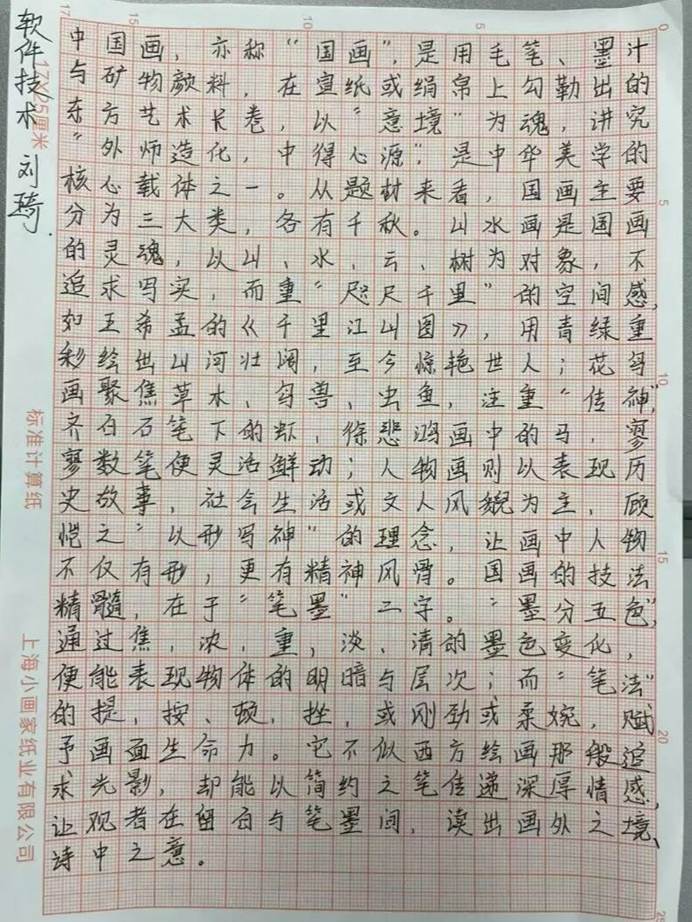 软件技术 刘琦.
中国画，亦称“国画”，是用毛笔、墨计
与矿物颜料，在宣纸或绢帛上勾勒出的
东方艺术长卷，以“意境”为魂，讲究
“外师造化，中得心源”，是中华美学的
核心载体之一。从题材来看，国画主要
分为三大类，各有千秋。山水画是国画
的灵魂，以山、水、云、树为对象，不
追求写实，而重“咫尺千里”的空间感，
如王希孟的《千里江山图》，用青绿重
彩绘出山河壮阔，至今惊艳世人；花鸟
画聚焦草木、鸟兽、虫鱼，注重“传神”，
齐白石笔下的虾，徐悲鸿画中的马，寥
寥数笔便灵活鲜动；人物画则以表现历
史故事，社会生活或文人风貌为主，顾
恺之“以形写神”的理念，让画中人物
不仅有形，更有精神风骨。国画的技法
精髓，在于“笔墨”二字。“墨分五色”，
通过焦，浓，重，淡、清的墨色变化，
便能表现物体的明暗与层次；而“笔法”
的提，按、顿，挫，或刚劲或柔婉，赋
予画面生命力。它不似西方绘画那般追
求光影，却能以简约之笔传递深厚情感，
让观者在留白与笔墨间，读出画外之境、
诗中之意。
17 15 10 5 0
5
10
15
20
25
17X25厘米
标准计算纸
上海小画家纸业有限公司